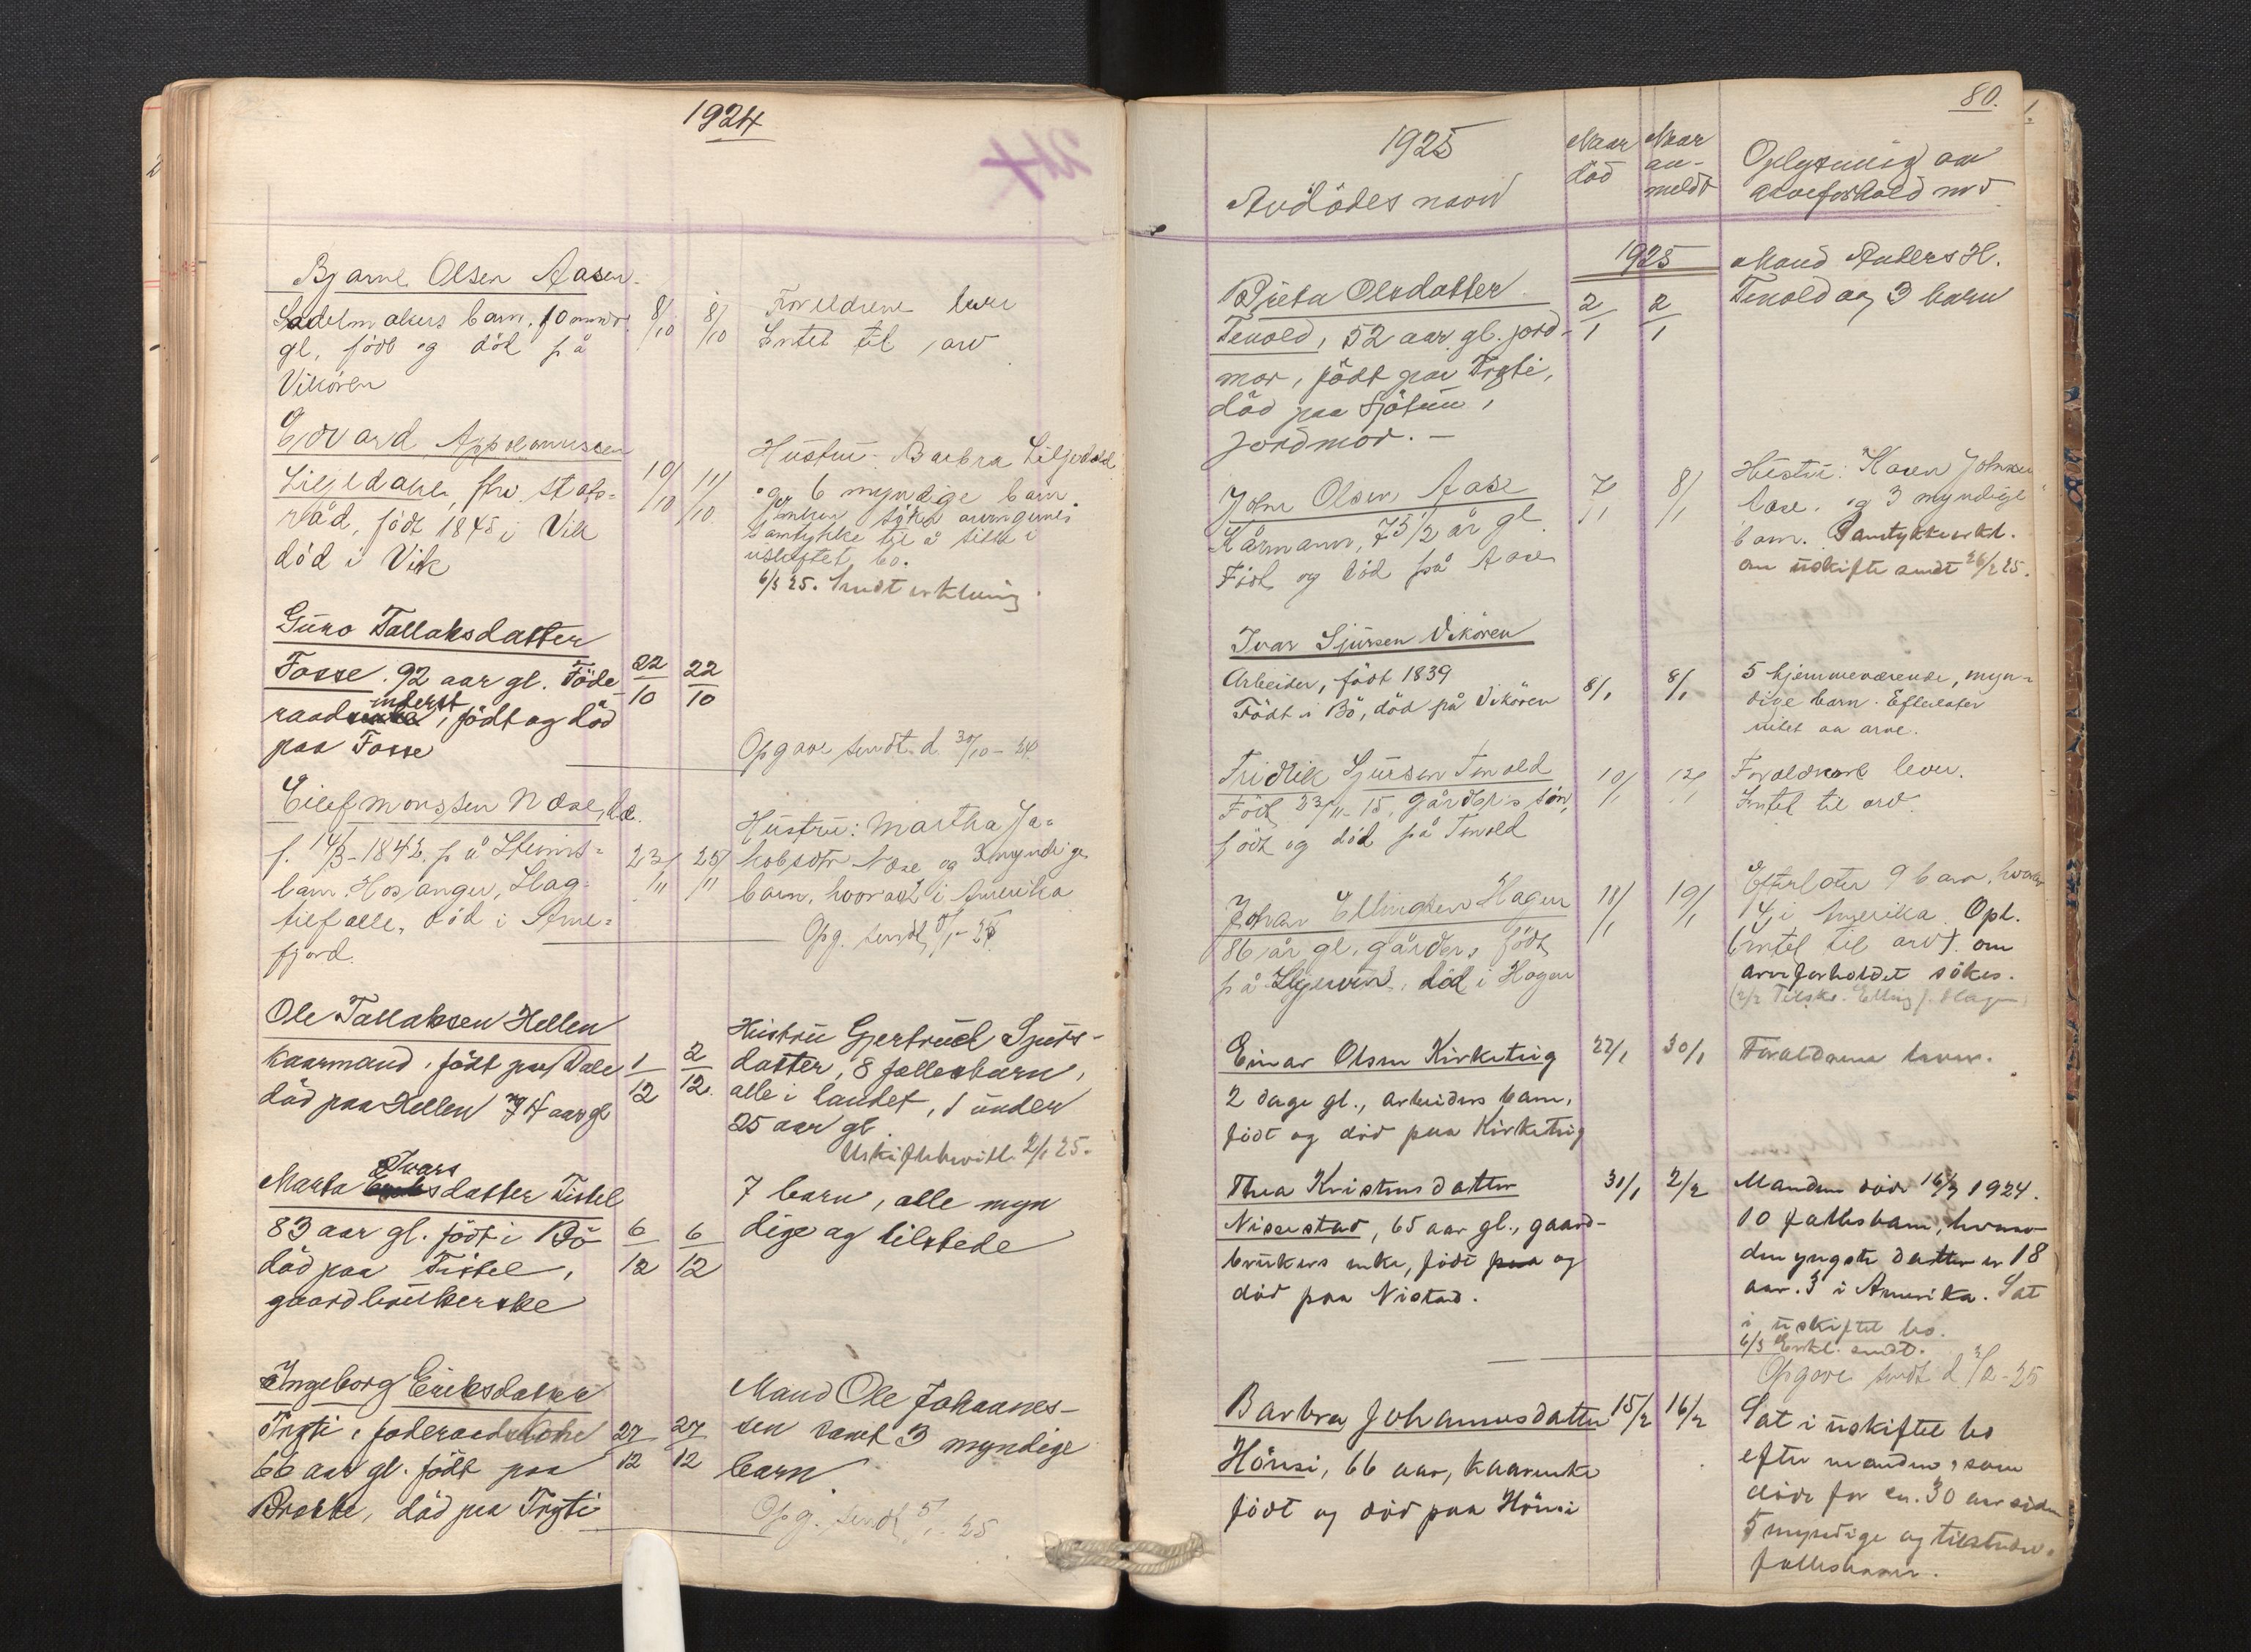 1924
24
Bjarne Olsen Aasen.
Sadelmakers barn, 10 mndr.
gl, född og död på
Vikören
8/10
8/10
Foreldrene lever
Intet til arv
Edvard Appoloniussen
Liljedahl, fhv. stats-
råd, född 1845 i Vik
död i Vik
10/10
11/10
Hustru: Barbra Liljedahl
og 6 myndige barn
Enken söker arvingenes
samtykke til å sitte i
uskiftet bo.
6/3 25. Sendt erklæring.
Guro Tallaksdatter
Fosse. 92 aar gl. Föde-
raads inderst, födt og död
paa Fosse
22/10
22/10
Opgave sendt d. 30/10 - 24.
Eilef Monssen Nese,
f. 14/3 - 1842, på Steins-
barn. Hosanger, Slag-
tilfælle, död i Arne-
fjord.
23/11
25/11
Hustru: Martha Ja-
kobsdtr Nese og 3 myndige
barn, hvorav 1 i Amerika
Opg. sendt 5/1 - 25.
Ole Tallaksen Hellen
kaarmand, födt paa Dale
död paa Hellen 74 aar gl
1/12
2/12.
Hustru Gjertrud Sjurs-
datter, 8 fællesbarn,
alle i landet, 1 under
25 aar gl.
Uskiftebevill. 2/1 25.
Marta Ivarsdatter Tistel
83 aar gl. födt i Bö
död paa Tistel,
gaardbrukerske
6/12
6/12
7 barn, alle myn
dige og tilstede
Ingeborg Eriksdatter
Trygti, foderaadskone
66 aar gl. födt paa
Brekke, död paa Trygti
27/12
27/12
Mand Ole Johannes-
sen samt 3 myndige
barn
Opg. sendt 5/1 - 25
80.
1925
Avdödes navn
Naar
död
Naar
an-
meldt
Oplysning om
arveforhold m v
1925
Brita Olsdatter
Tenold, 52 aar gl. jord-
mor, födt paa Trygti,
död paa Sjötun,
Jordmor. -
2/1
2/1
Mand Anders H.
Tenold og 3 barn
John Olsen Aase
Kårmann, 75 1/2 år gl.
Född og död på Aase
7/1
8/1
Hustru: Karen Johnsen
Aase. og 3 myndige
barn. Samtykkeerkl.
om uskifte sendt 26/2 25.
Ivar Sjursen Vikören
Arbeider, födt 1839
Födt i Bö, död på Vikören
8/1
8/1
5 hjemmeværende, myn-
dige barn. Efterlater
intet av arve.
Fridtik Sjursen Tenold
Född 23/11 - 15, gårdbr's sön,
född og död på Tenold
10/1
12/1
Foreldrene lever.
Intet til arv.
Johan Ellingsen Hagen
86 år gl, gårdbr, född
på Skjervin, död i Hagen
18/1
19/1
Efterlater 9 barn, hvorav
4 i Amerika. Opl.
(intet til arv). om
arveforholdet sökes.
(2/2 Tilskr. Elling J. Hagen)
Einar Olsen Kirketeig
2 dage gl., arbeiders barn,
födt og död paa Kirketeig
27/1
30/1
Forældrene lever.
Thea Kristensdatter
Nisestad, 65 aar gl., gaard-
brukers enke, födt paa og
död paa Nistad.
31/1
2/2
Manden död 16/3 1924.
10 fællesbarn, hvorav
den yngste datter er 18
aar. 3 i Amerika. Sat
i uskiftet bo.
6/3 Erkl. sendt.
Opgave sendt d 3/2 - 25
Barbra Johannesdatter
Hönsi, 66 aar, kaarenke
födt og död paa Hönsi
15/2
16/2
Sat i uskiftet bo
efter manden, som
döde for ca. 30 aar siden
5 myndige og tilstedev.
fællesbarn.